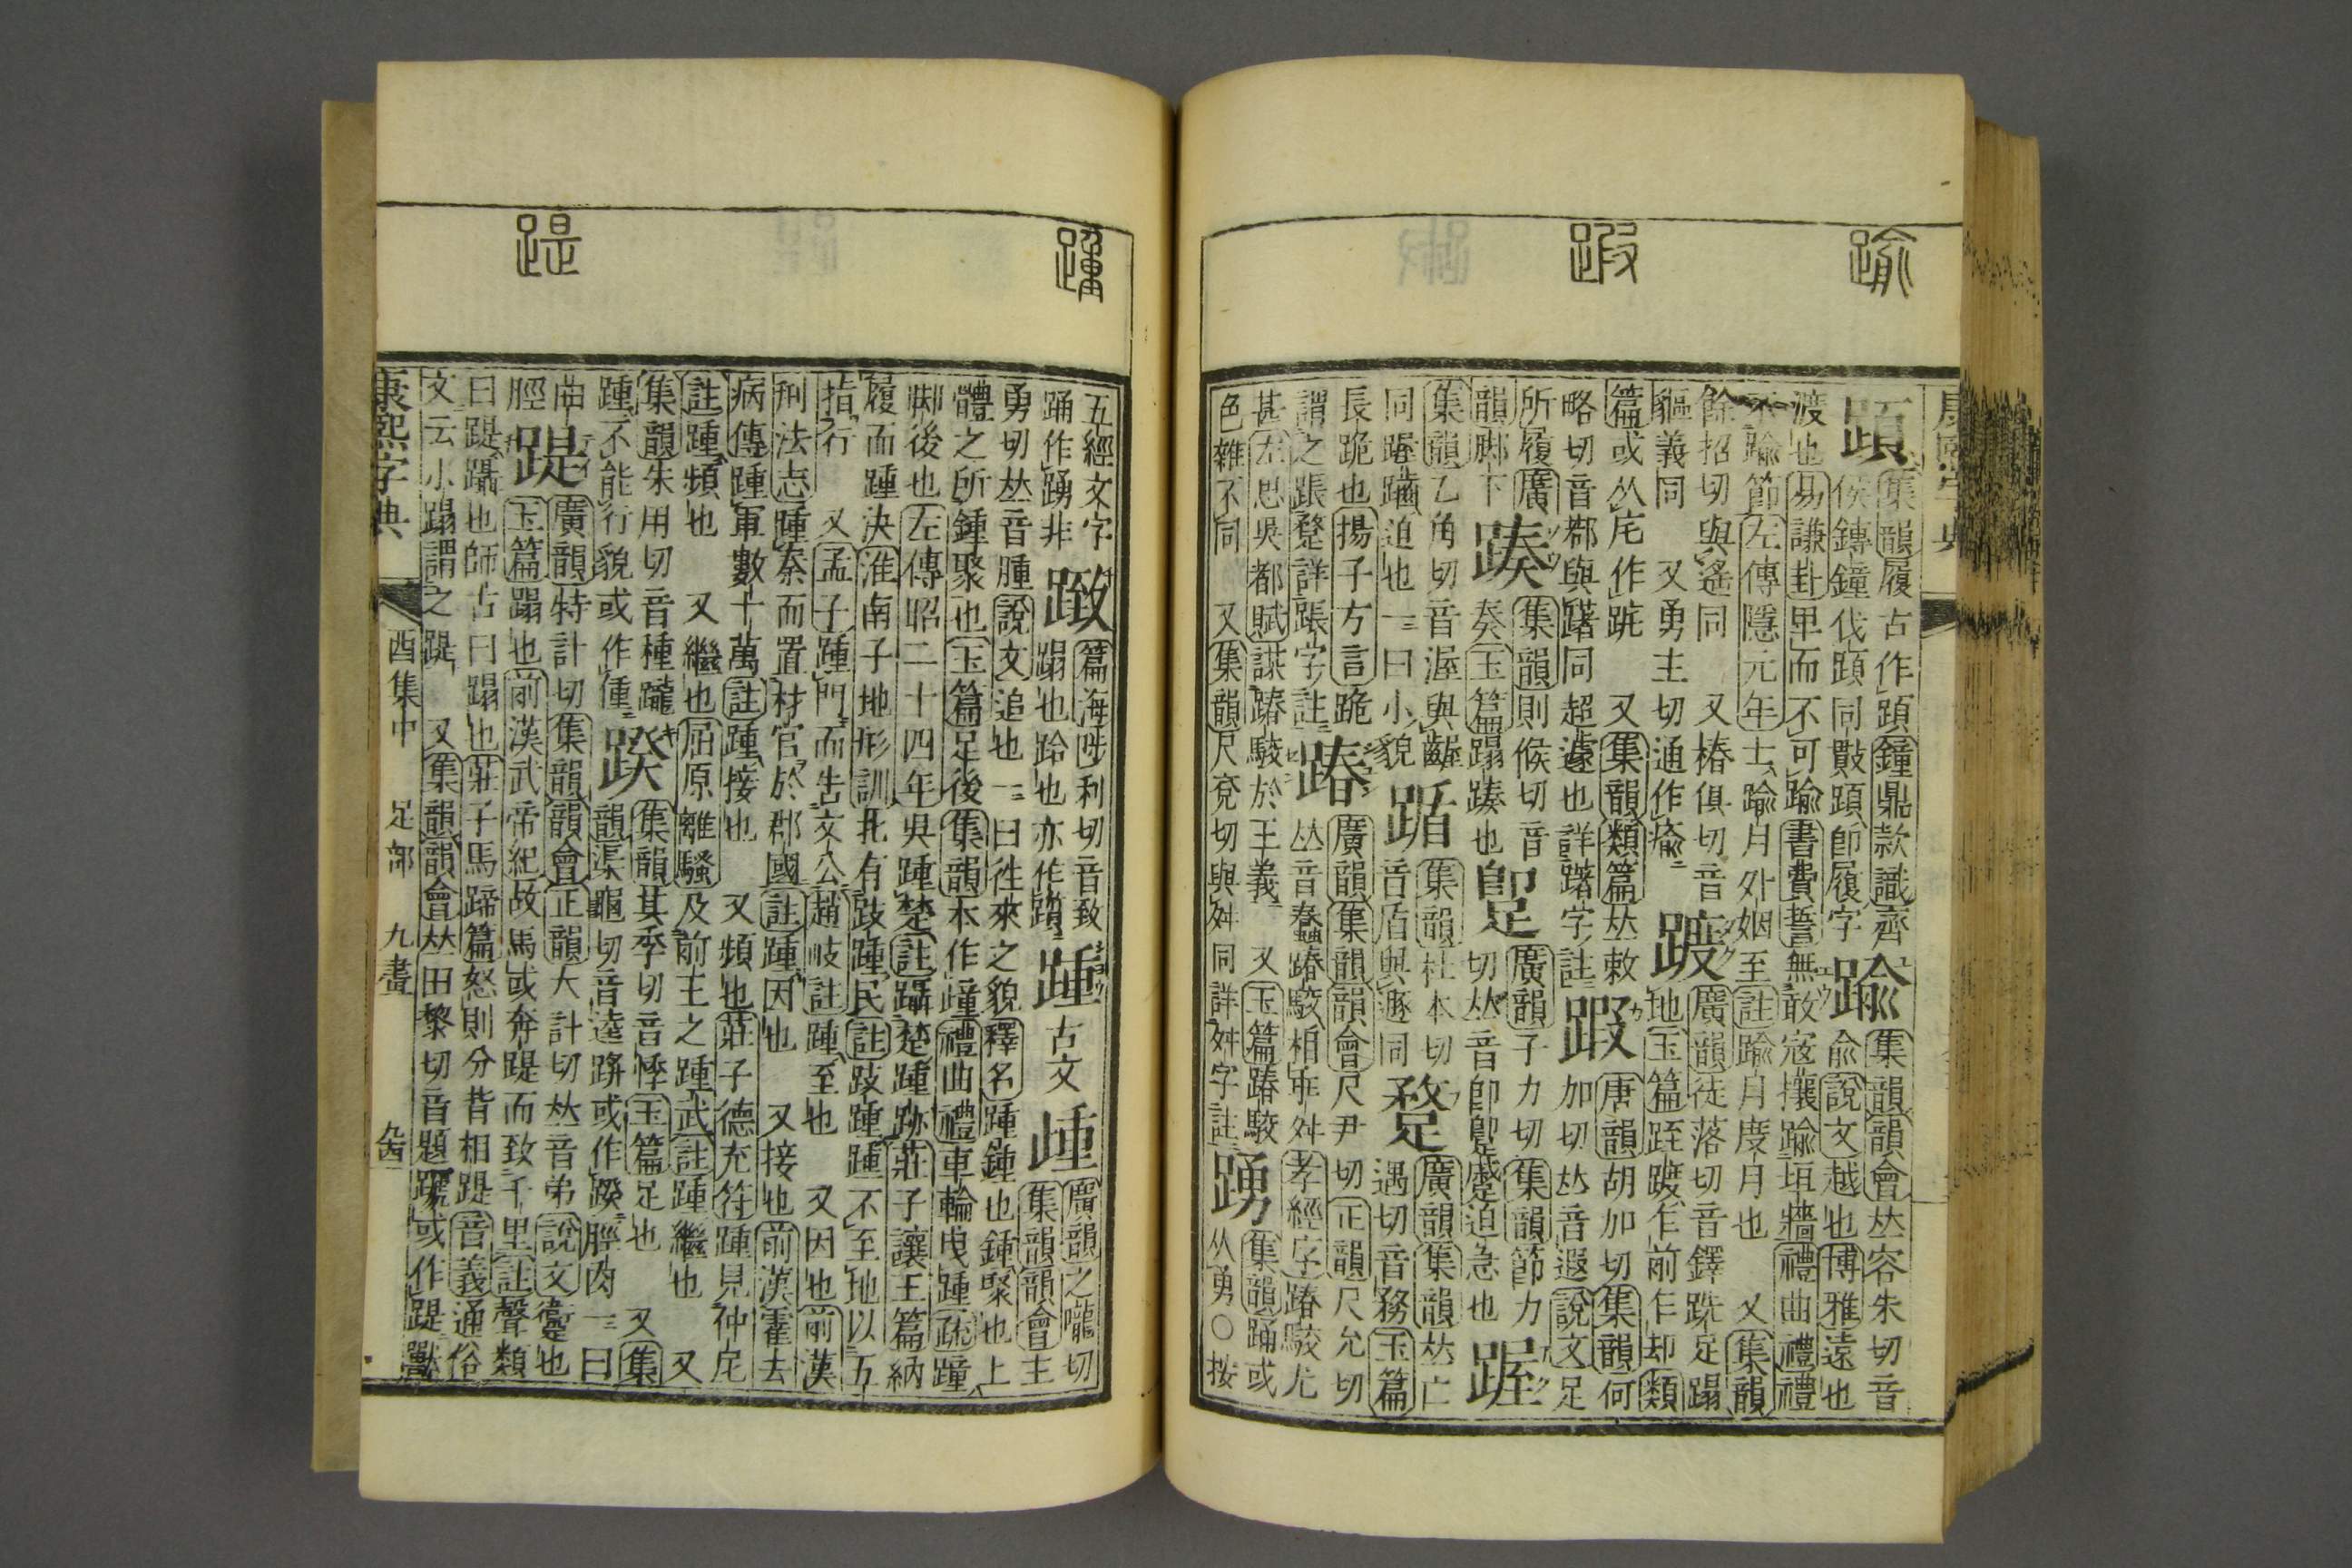 踰
遐
康熙字典
集韻履古作䫌鐘鼎款識齊
侯鏄鐘伐䫌同敺䫌卽履字
踰
集韻韻會𠀤容朱切音
兪說文越也博雅遠也
渡也易謙卦𤰞而不可踰書費誓無敢宼攘踰垣牆禮曲禮禮
不踰節左傳隱元年士踰月外姻至註踰月度月也 又集韻
餘招切與遙同 又椿俱切音
貙義同 又勇主切通作瘉
踱
廣韻徒落切音鐸跣足蹋
地玉篇跮踱乍前乍却類
篇或从㡯作 又集韻類篇𠀤敕
略切音與躇同超遽也詳躇字註
唐韻胡加切集韻何
加切𠀤音遐說文足
所履廣
韻脚下
集韻則候切音
奏玉篇蹋也
廣韻子力切集韻節力
切𠀤音卽蹙迫急也
集韻乙角切音渥與齷
同齪迫也一曰小貌
集韻杜本切
音盾與遯同
廣韻集韻𠀤亡
遇切音務玉篇
長跪也揚子方言跪
謂之詳字註
踳
廣韻集韻韻會尺尹切正韻尺允切
𠀤音蠢踳駁相乖舛孝經序踳駁尤
甚左思吳都賦謀踳駮於王義 又玉篇踳駮
色雜不同 又集韻尺兗切與舛同詳舛字註
踴
集韻踊或
从勇○按
踵
踶
五經文字
踊作踴非
篇海陟利切音致
蹋也跲也亦作躓
踵
古文
歱
廣韻之隴切
集韻韻會主
勇切𠀤音腫說文追也一曰徃來之貌釋名踵鍾也鍾聚也上
體之所鍾聚也玉篇足後集韻本作歱禮曲禮車輪曳踵疏踵
脚後也左傳昭二十四年吳踵楚註躡楚踵跡莊子讓王篇納
履而踵決淮南子地形訓北有跂踵民註跂踵踵不至地以五
指行 又孟子踵門而吿文公趙岐註踵至也 又因也前漢
刑法志踵秦而置材官於郡國註踵因也 又接也前漢霍去
病傳踵軍數十萬註踵接也 又頻也莊子德充符踵見仲尼
註踵頻也 又繼也屈原離騷及前王之踵武註踵繼也 又
集韻朱用切音種躘
踵不能行貌或作㣫
䠏
集韻其季切音悸玉篇足也 又集
韻渠龜切音逵跰或作䠏脛肉一曰
曲
脛
踶
廣韻特計切集韻韻會正韻大計切𠀤音弟說文躗也
玉篇蹋也前漢武帝紀故馬或奔踶而致千里註聲類
曰踶躡也師古曰蹋也莊子馬蹄篇怒則分背相踶音義通俗
文云小蹋謂之踶 又集韻韻會𠀤田黎切音題或作踶獸
康熙字典 酉集中 足部 九畫